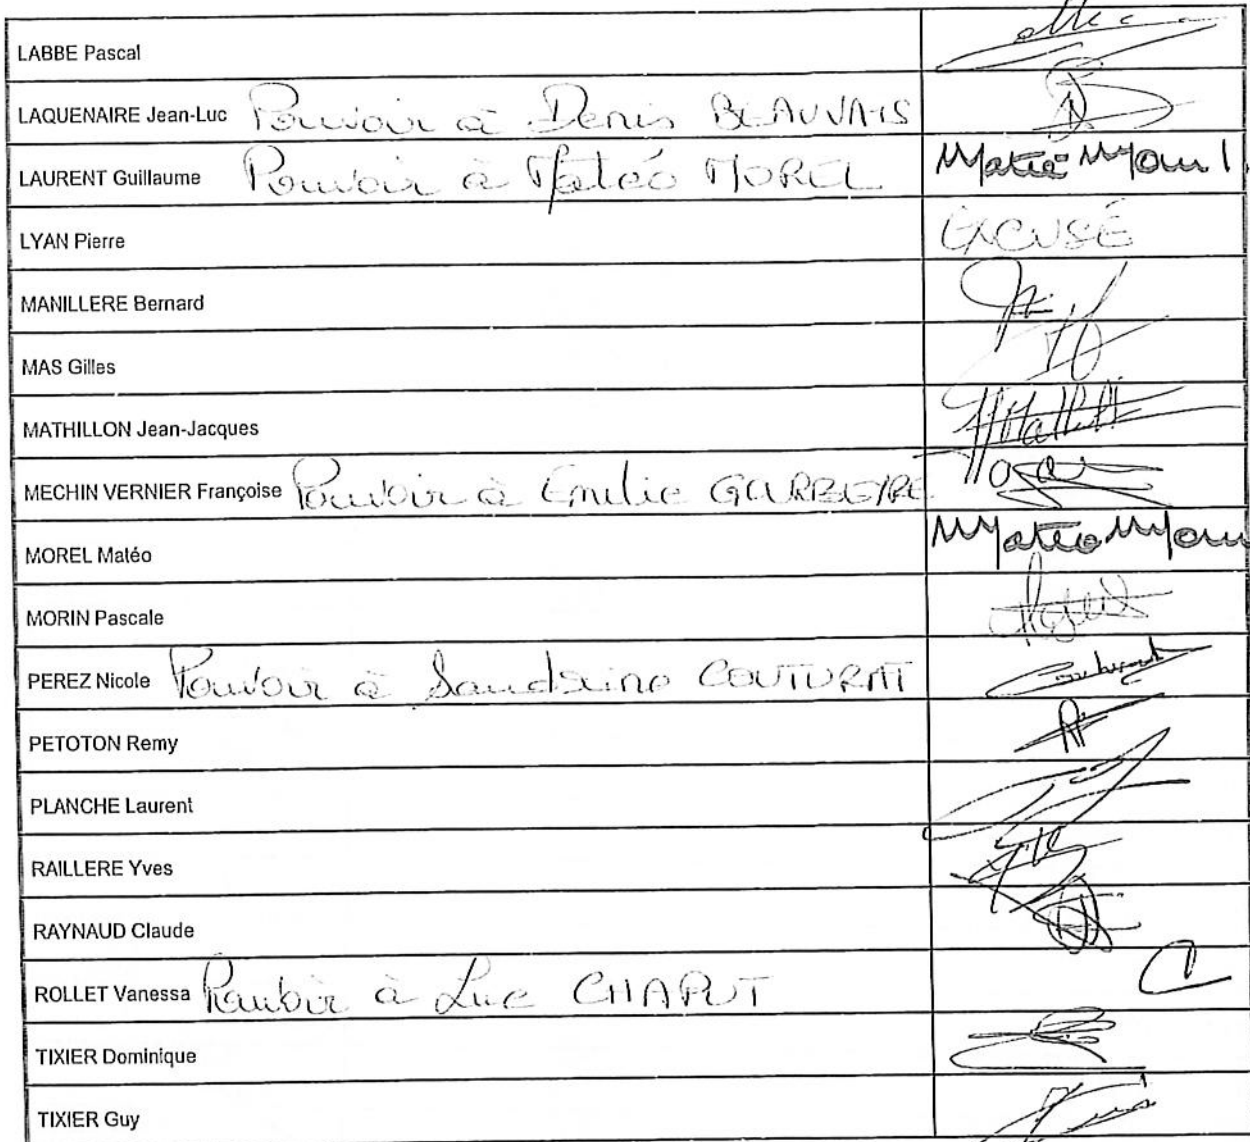 LABBE Pascal
LAQUENAIRE Jean-Luc Pouvoir à Denis BEAUVAIS
LAURENT Guillaume Pouvoir à Matéo MOREL Matéo Morel
LYAN Pierre EXCUSÉ
MANILLERE Bernard
MAS Gilles
MATHILLON Jean-Jacques
MECHIN VERNIER Françoise Pouvoir à Emilie GOURBEYRE
MOREL Matéo Matéo Morel
MORIN Pascale
PEREZ Nicole Pouvoir à Sandrine COUTURAT
PETOTON Remy
PLANCHE Laurent
RAILLERE Yves
RAYNAUD Claude
ROLLET Vanessa Pouvoir à Luc CHAPUT
TIXIER Dominique
TIXIER Guy